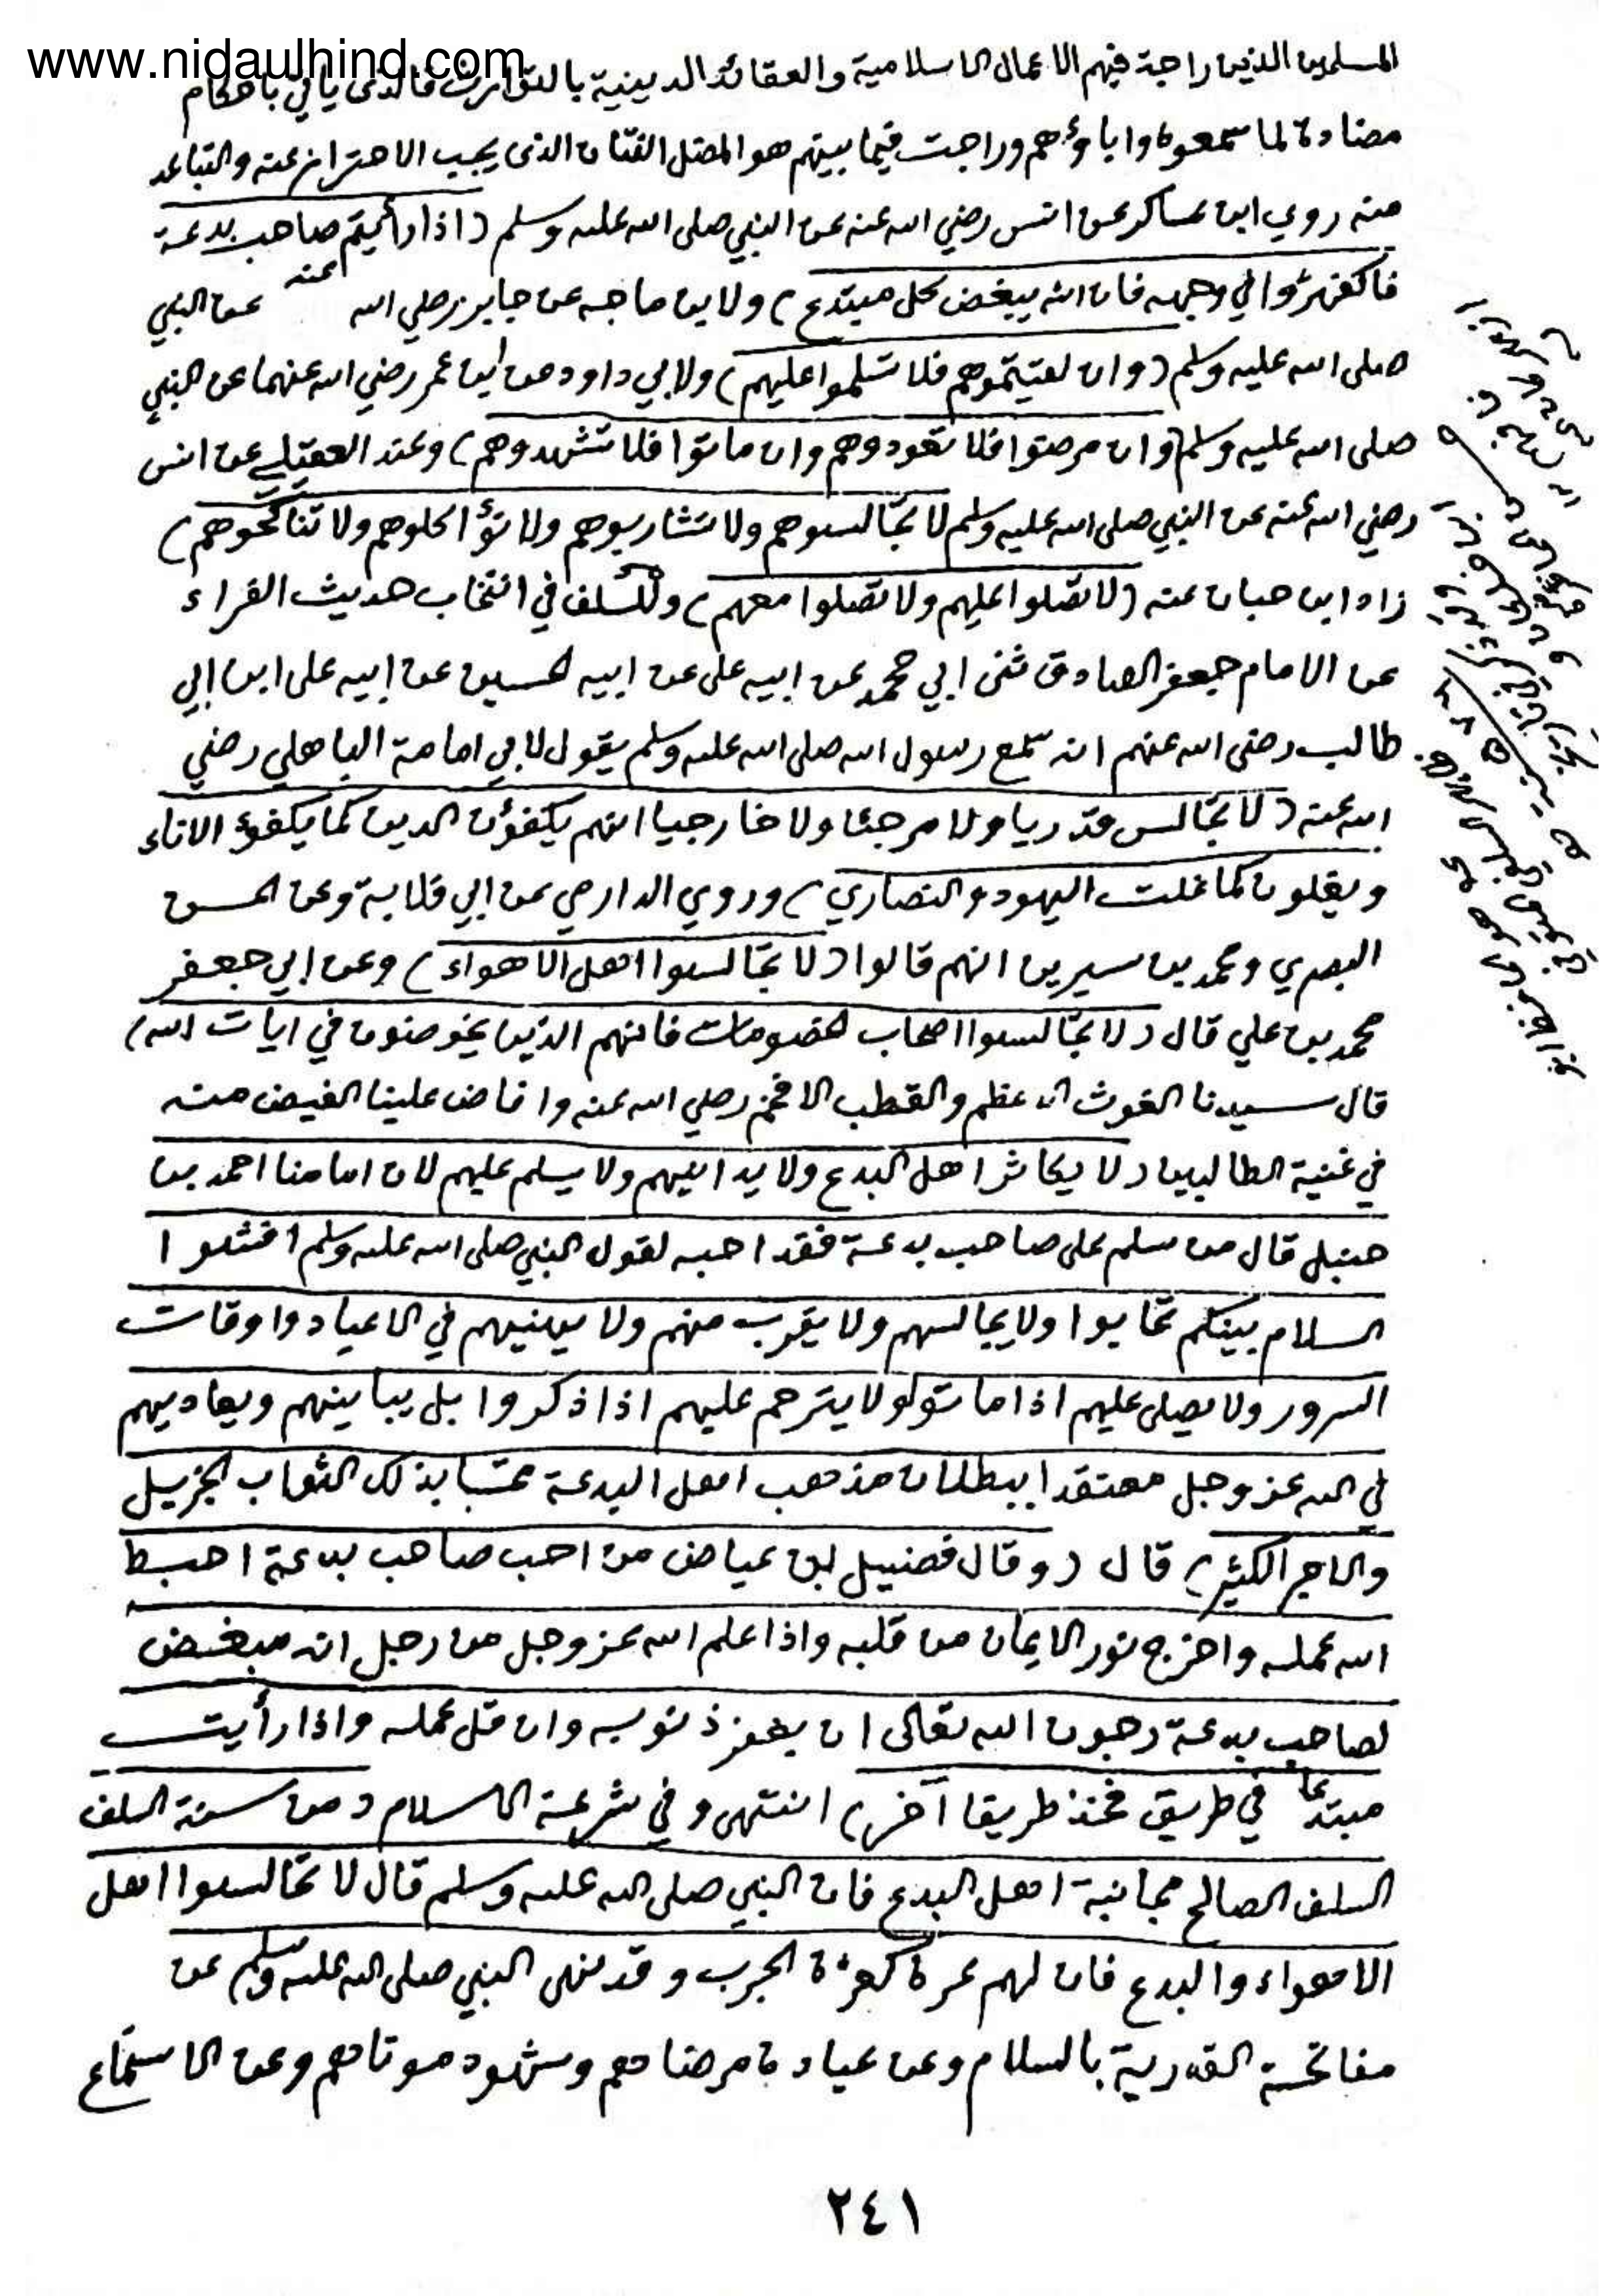 www.nidaulhind.com
المسلمين الذين راجة فيهم الاعمال الاسلامية والعقائد الدينية بالتوارث فالذى يأتي باحكام
مضادة لما سمعوه وابا ؤهم وراجت فيما بينهم هو المضل الفتان الذى يجيب الاحتراز عنه والتباعد
منه روي ابن عساكر عن انس رضي الله عنه عن النبي صلى الله عليه وسلم (اذا رأيتم صاحب بدعة
فاكفهرّوا في وجهه فان الله يبغض كل مبتدع) ولابن ماجه عن جابر رضي الله عنه عن النبي
صلى الله عليه وسلم (وان لقيتموهم فلا تسلموا عليهم) ولابي داود عن ابن عمر رضي الله عنهما عن النبي
صلى الله عليه وسلم (وان مرضوا فلا تعودوهم وان ماتوا فلا تشهدوهم) وعند العقيلي عن انس
رضي الله عنه عن النبي صلى الله عليه وسلم لا تجالسوهم ولا تشاربوهم ولا تؤاكلوهم ولا تناكحوهم)
زاد ابن حبان عنه (لا تصلوا عليهم ولا تصلوا معهم) وللسلف في انتخاب حديث القراء
عن الامام جعفر الصادق ثنى ابي محمد عن ابيه على عن ابيه الحسين عن ابيه على ابن ابي
طالب رضى الله عنهم انه سمع رسول الله صلى الله عليه وسلم يقول لابي امامة الباهلي رضي
الله عنه (لا تجالس قدريا ولا مرجئا ولا خارجيا انهم يكفؤن الدين كما يكفؤ الاناء
ويغلون كما غلت اليهود والنصاري) وروي الدارمي عن ابي قلابة وعن الحسن
البصري ومحمد بن سيرين انهم قالوا (لا تجالسوا اهل الاهواء) وعن ابي جعفر
محمد بن علي قال (لا تجالسوا اصحاب الخصومات فانهم الذين يخوضون في ايات الله)
قال سيدنا الغوث الاعظم والقطب الافخم رضي الله عنه وافاض علينا الفيض منه
في غنية الطالبين (لا يكاثر اهل البدع ولا يدانيهم ولا يسلم عليهم لان امامنا احمد بن
حنبل قال من سلم على صاحب بدعة فقد احبه لقول النبي صلى الله عليه وسلم افشوا
السلام بينكم تحابوا ولا يجالسهم ولا يقرب منهم ولا يهنيهم في الاعياد واوقات
السرور ولا يصلى عليهم اذا ماتوا ولا يترحم عليهم اذا ذكروا بل يباينهم ويعاديهم
في الله عز وجل معتقدا ببطلان مذهب اهل البدعة محتسبا بذلك الثواب الجزيل
والاجر الكثير) قال (وقال فضيل ابن عياض من احب صاحب بدعة احبط
الله عمله واخرج نور الايمان من قلبه واذا علم الله عز وجل من رجل انه مبغض
لصاحب بدعة رجوت الله تعالى ان يغفر ذنوبه وان قل عمله واذا رأيت
مبتدعا في طريق فخذ طريقا آخر) انتهى وفي شرعة الاسلام (من سنة السلف
السلف الصالح مجانبة اهل البدع فان النبي صلى الله عليه وسلم قال لا تجالسوا اهل
الاهواء والبدع فان لهم عرة كعرة الجرب وقد نهى النبي صلى الله عليه وسلم عن
مفاتحة القدرية بالسلام وعن عيادة مرضاهم وشهود موتاهم وعن الاستماع
٢٤١